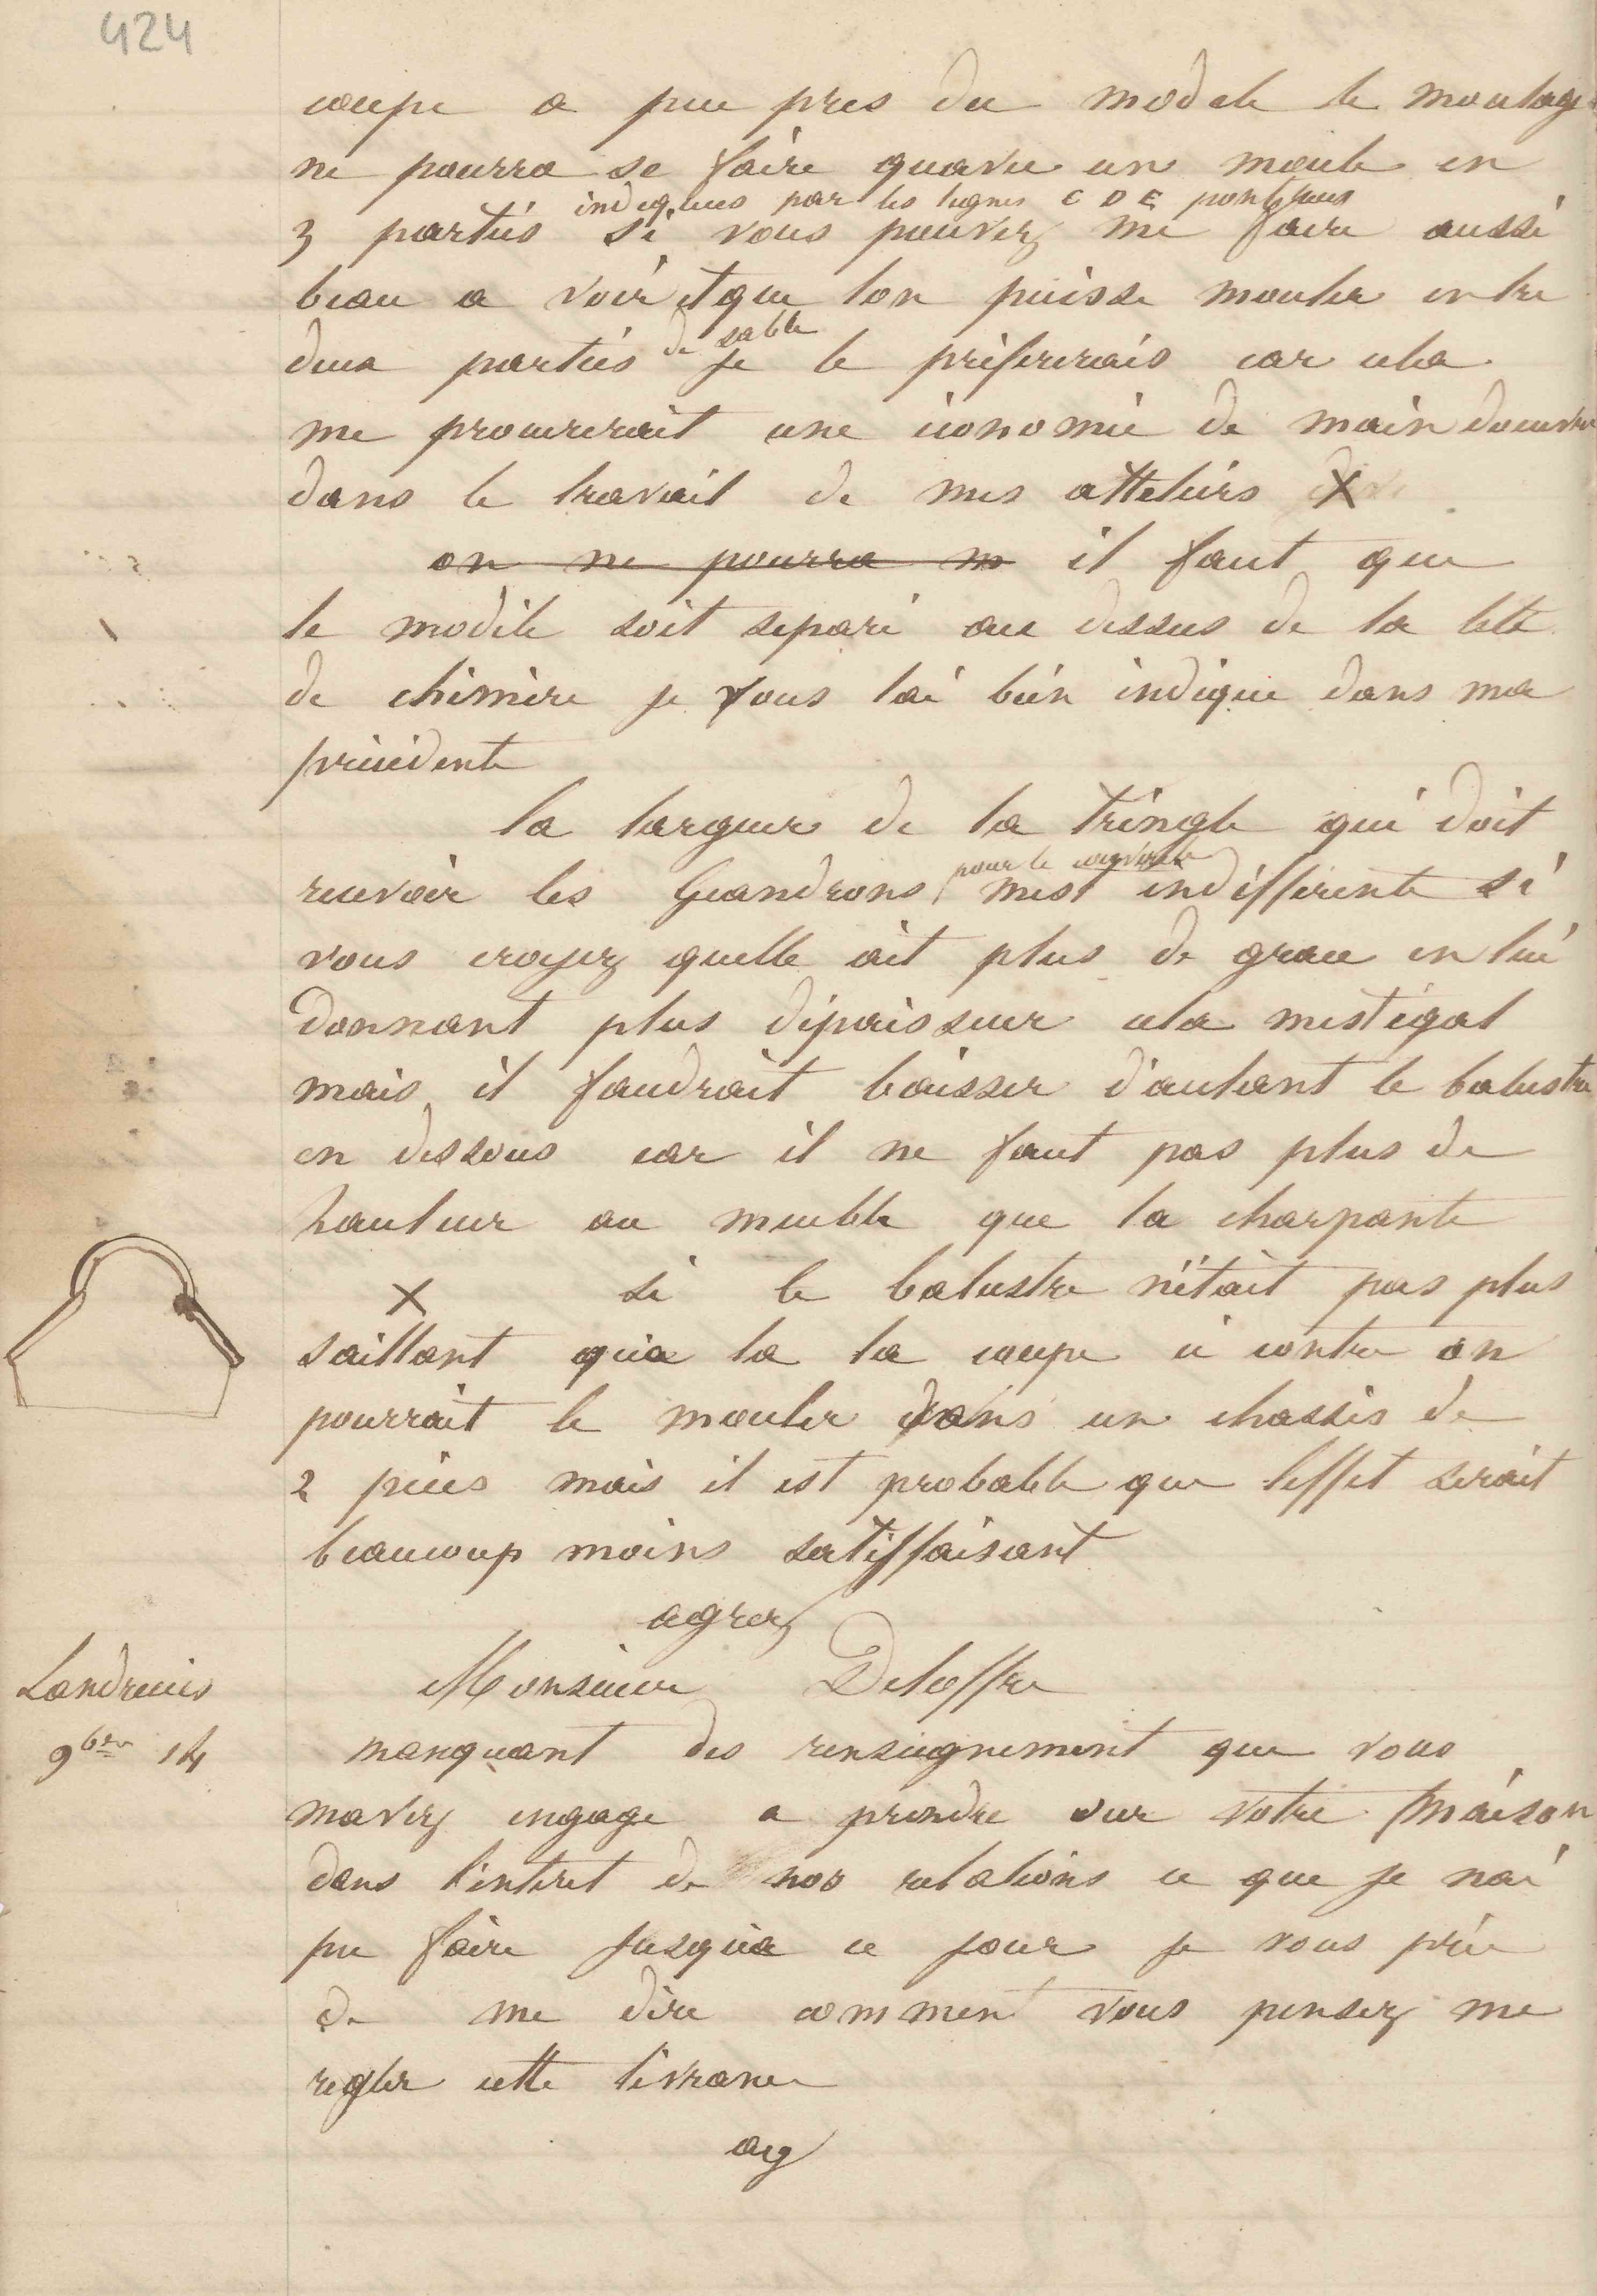 424
coupe a peu pres du modele le moulage
ne pourra se faire quavec un moule en
indiquees par les lignes C D E pointillees
3 parties si vous pouvez me faire aussi
beau a voir et que lon puisse mouler entre
deux parties de sable je le prefererais car cela
me procurerait une economie de main doeuvre
dans le travail de mes atteliers X
on ne pourra m il faut que
le modele soit separé au dessus de la tete
de chimère je vous lai bien indique dans ma
précédente
la largeur de la tringle qui doit
pour le couvercle
recevoir les Guandrons mest indifferente si
vous croyez quelle ait plus de grace en lui
donnant plus dépaisseur cela mest égal
mais il faudrait baisser d'autant le balustre
en dessous car il ne faut pas plus de
hauteur au meuble que la charpante
X si le balustre n'était pas plus
saillant qua la la coupe ci contre on
pourrait le mouler dans un chassis de
2 pieces mais il est probable que leffet serait
beaucoup moins satiffaisant
agreez
Landrecies
9bre 14
Monsieur Deloffre
manquant des renseignement que vous
mavez engage a prendre sur votre maison
dans l'interet de nos relations ce que je nai
pu faire jusqua ce jour je vous prie
de me dire comment vous pensez me
regler cette livrance
ag